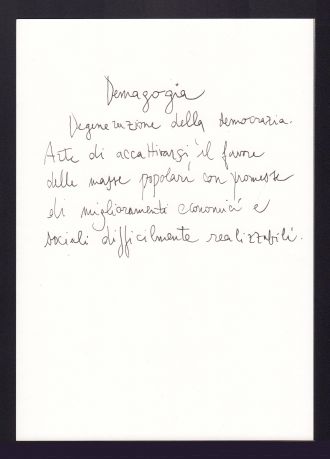 Demagogia
Degenerazione della democrazia.
Arte di accattivarsi il favore
delle masse popolari con promesse
di miglioramenti economici e
sociali difficilmente realizzabili.